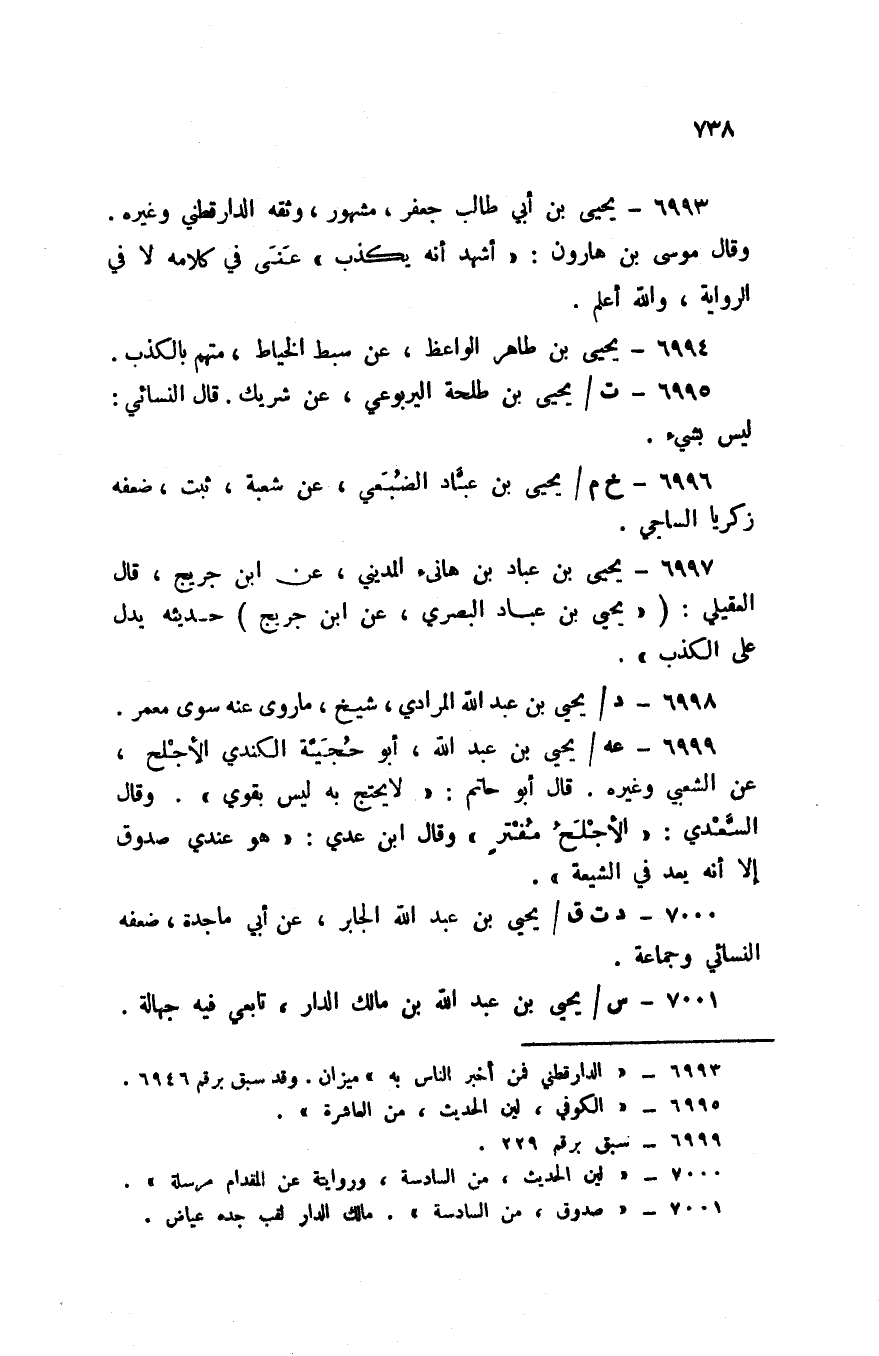 ٧٣٨
٦٩٩٣ – يحيى بن أبي طالب جعفر ، مشهور ، وثقه الدارقطني وغيره .
وقال موسى بن هارون : « أشهد أنه يكذب » عَنَى في كلامه لا في
الرواية ، والله أعلم .
٦٩٩٤ – يحيى بن طاهر الواعظ ، عن سبط الخياط ، متهم بالكذب .
٦٩٩٥ – ت / يحيى بن طلحة اليربوعي ، عن شريك . قال النسائي :
ليس بشيء .
٦٩٩٦ – خ م / يحيى بن عبَّاد الضُبَعي ، عن شعبة ، ثبت ، ضعفه
زكريا الساجي .
٦٩٩٧ – يحيى بن عباد بن هانىء المديني ، عن ابن جريج ، قال
العقيلي : ( « يحيى بن عباد البصري ، عن ابن جريج ) حديثه يدل
على الكذب » .
٦٩٩٨ – د / يحيى بن عبد الله المرادي ، شيخ ، ماروى عنه سوى معمر .
٦٩٩٩ – عه / يحيى بن عبد الله ، أبو حُجَيَّة الكندي الأجْلح ،
عن الشعبي وغيره . قال أبو حاتم : « لايحتج به ليس بقوي » . وقال
السَّعْدي : « الأجْلَحُ مُفْترٍ » وقال ابن عدي : « هو عندي صدوق
إلا أنه يعد في الشيعة » .
٧٠٠٠ – د ت ق / يحيى بن عبد الله الجابر ، عن أبي ماجدة ، ضعفه
النسائي وجماعة .
٧٠٠١ – س / يحيى بن عبد الله بن مالك الدار ، تابعي فيه جهالة .
٦٩٩٣ – « الدارقطني فمن أخبر الناس به » ميزان . وقد سبق برقم ٦٩٤٦ .
٦٩٩٥ – « الكوفي ، لين الحديث ، من العاشرة » .
٦٩٩٩ – سبق برقم ٢٢٩ .
٧٠٠٠ – « لين الحديث ، من السادسة ، وروايتة عن المقدام مرسلة » .
٧٠٠١ – « صدوق ، من السادسة » . مالك الدار لقب جده عياض .